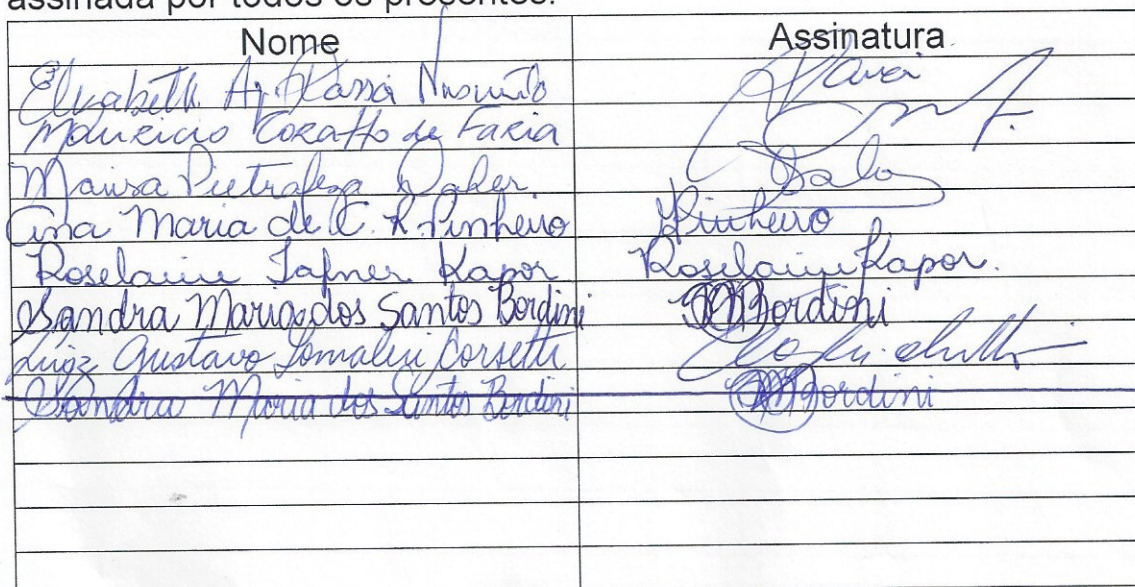 assinada por todos os presentes.
Nome Assinatura
Elizabeth Ap.
Mauricio Coratto de Faria
Maisa Pietrafesa Daher.
Ana Maria de C. R. Pinheiro Pinheiro
Roselaine Tafner Kapor Roselaine Kapor.
Sandra Maria dos Santos Bordini Bordini
Luiz Gustavo Corsetti
Sandra Maria dos Santos Bordini Bordini